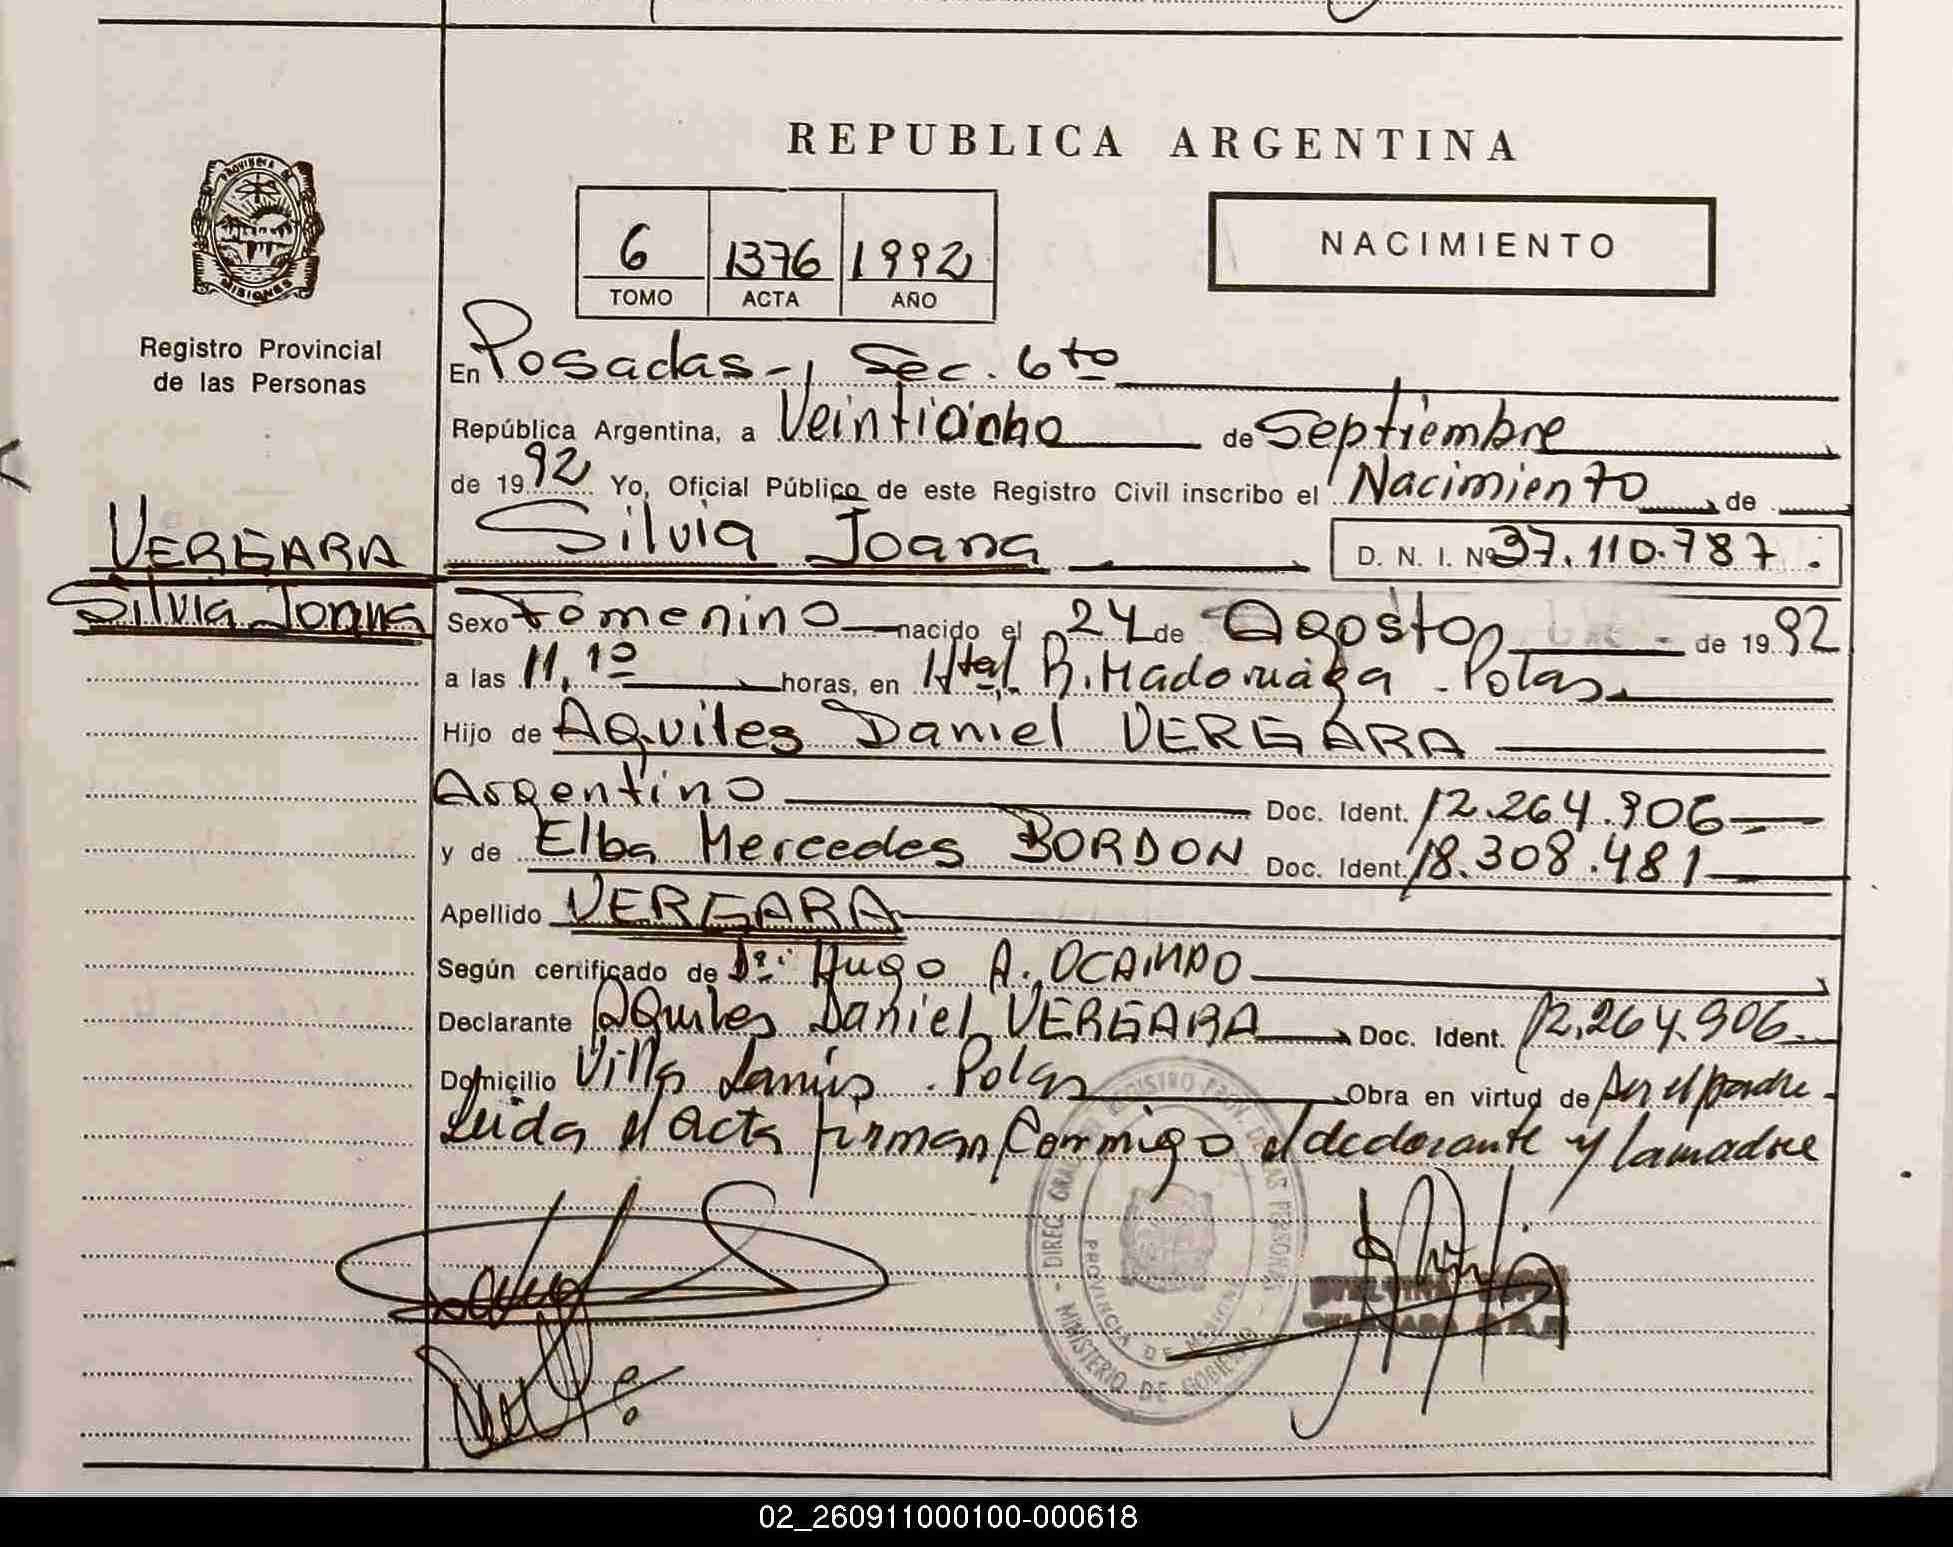 REPUBLICA ARGENTINA
PROVINCIA DE MISIONES
Registro Provincial
de las Personas
6 1376 1992
TOMO ACTA AÑO
NACIMIENTO
En Posadas-, Sec. 6to
República Argentina, a Veintiocho de Septiembre
de 1992 Yo, Oficial Público de este Registro Civil inscribo el Nacimiento de
VERGARA
Silvia Joana
Silvia Joana D. N. I. Nº 37.110.787.
Sexo Femenino nacido el 24 de Agosto de 1992
a las 11,10 horas, en Htal. R. Madariaga - Pdas.
Hijo de Aquiles Daniel VERGARA
Argentino Doc. Ident. 12.264.906
y de Elba Mercedes BORDON Doc. Ident. 18.308.481
Apellido VERGARA
Según certificado de Dr. Hugo A. OCAMPO
Declarante Aquiles Daniel VERGARA Doc. Ident. 12.264.906.
Domicilio Villa Lanús - Pdas Obra en virtud de ser el padre -
Leida el acta firman conmigo el declarante y la madre
DIREC. GRAL. REGISTRO PROV. DE LAS PERSONAS
PROVINCIA DE MISIONES
MINISTERIO DE GOBIERNO
02_260911000100-000618